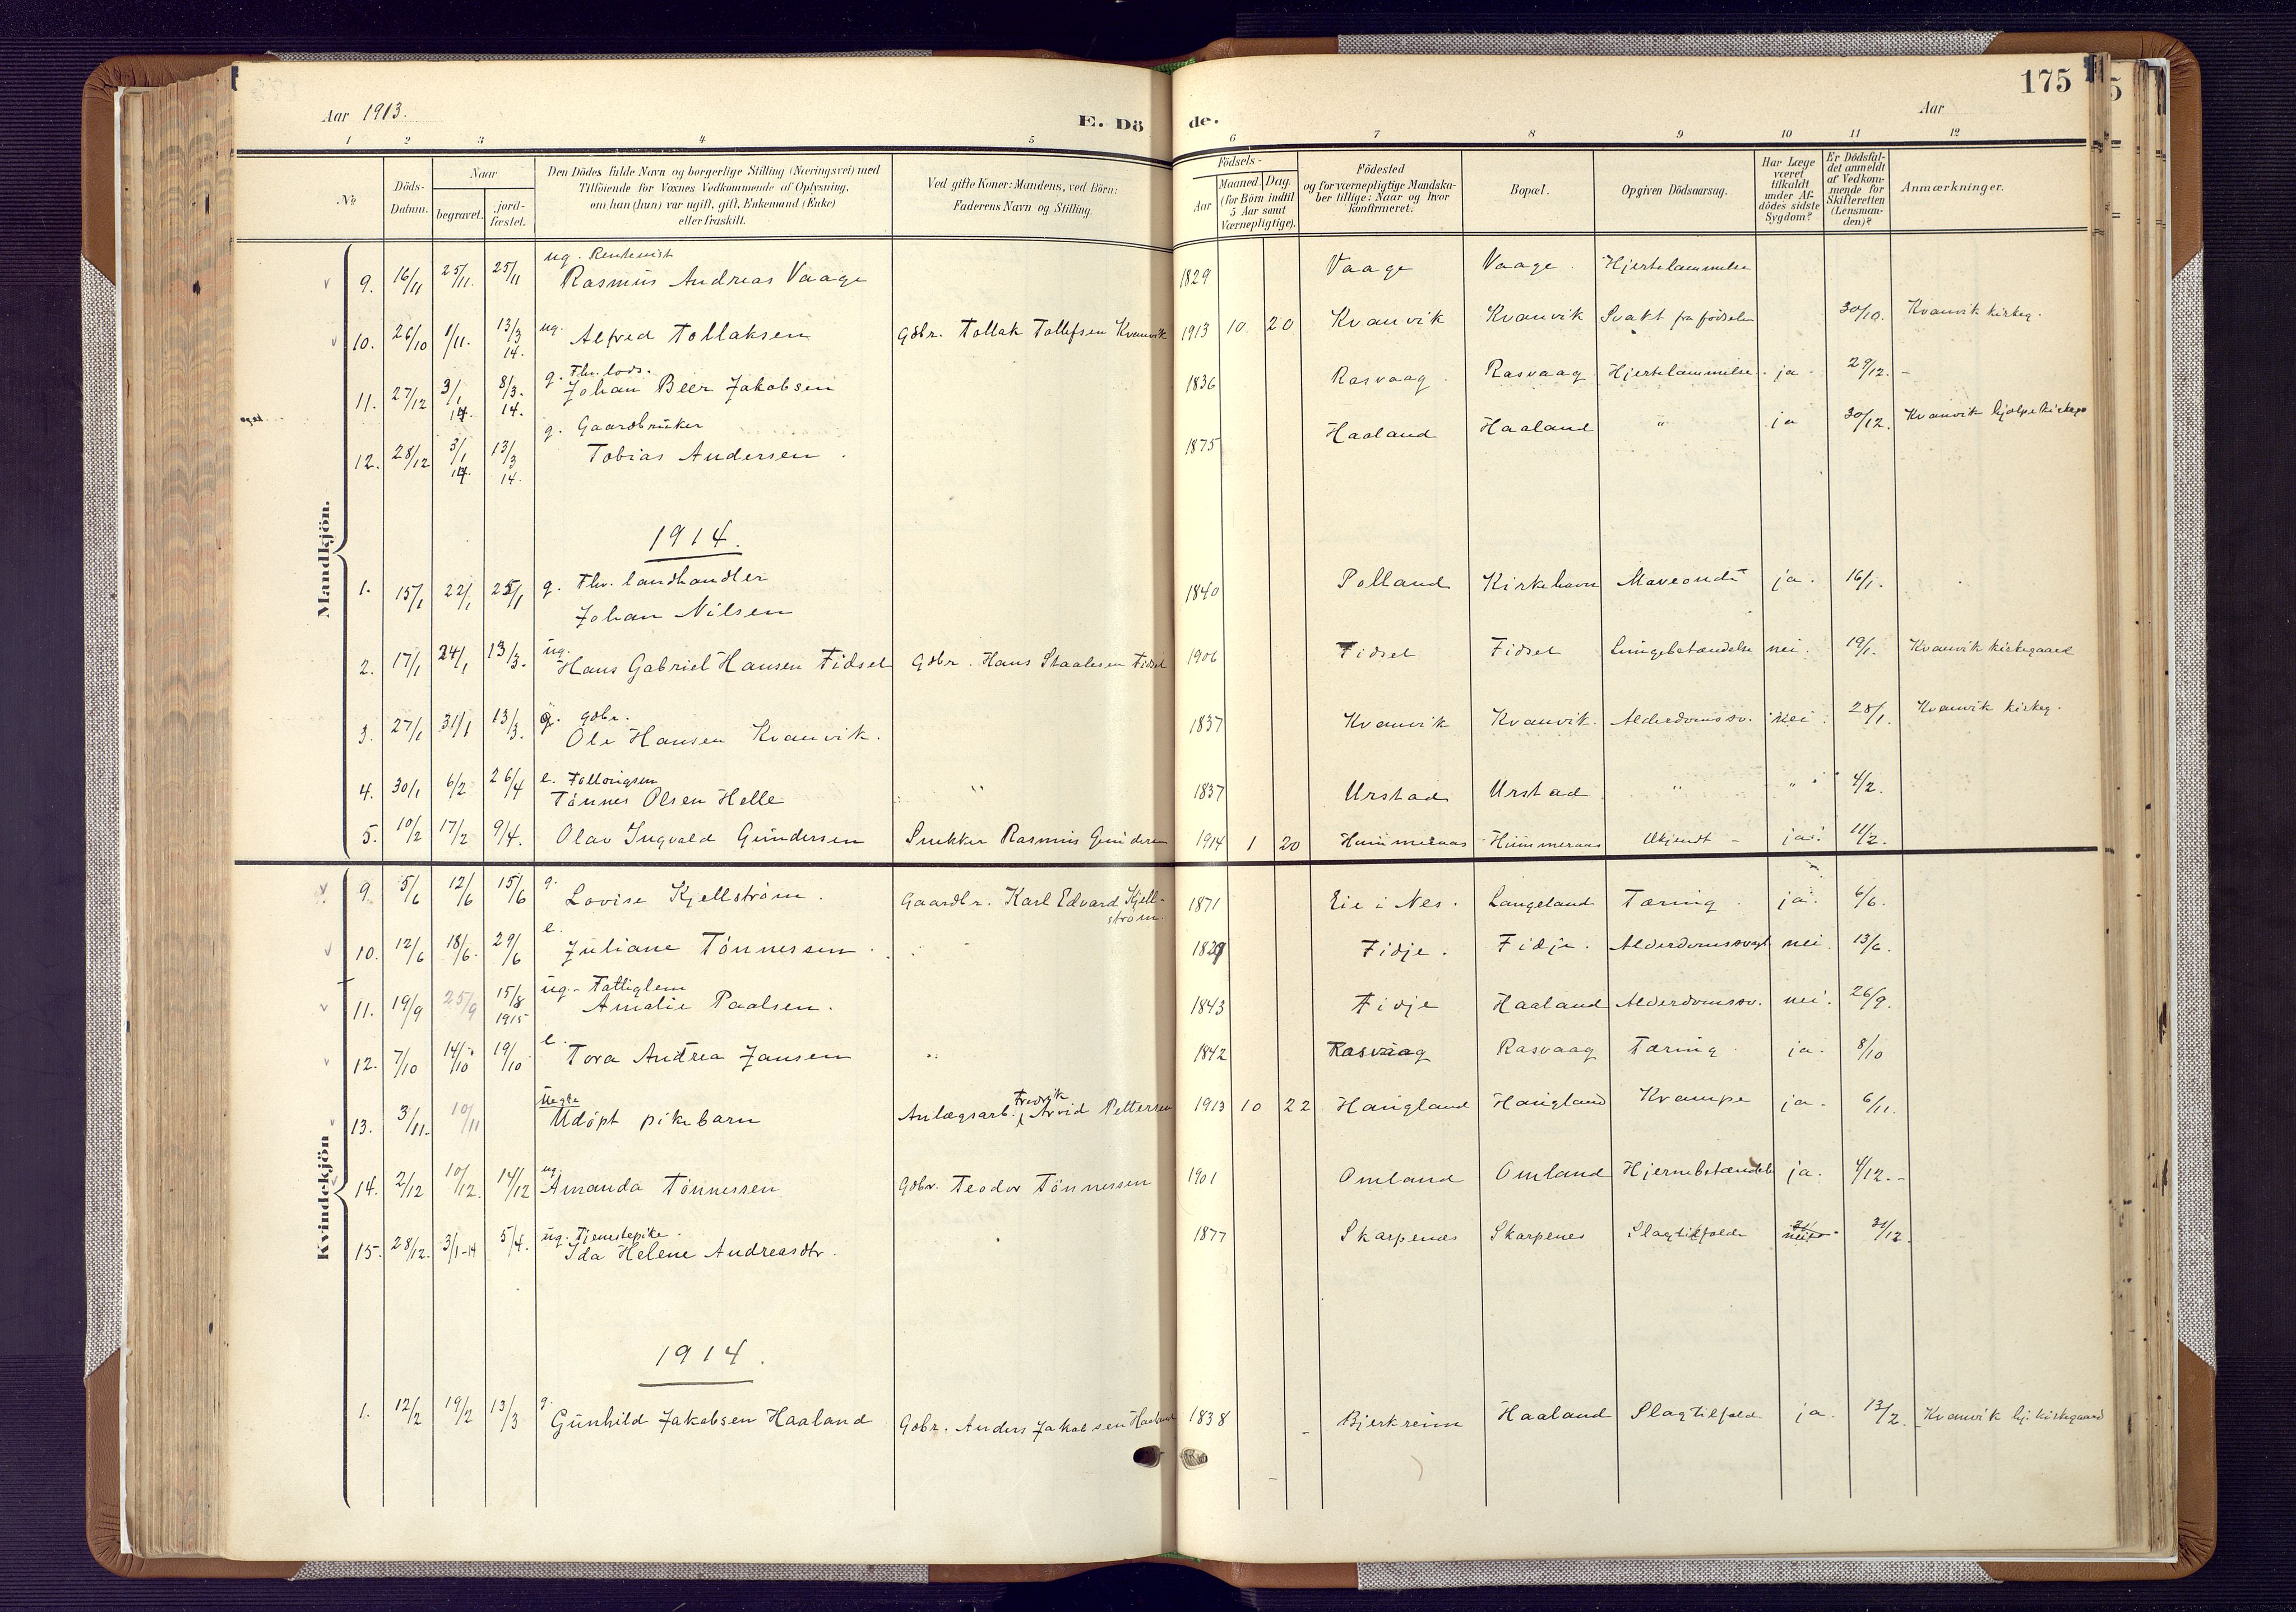 175
Aar 1913.
E. Dö de.
Aar
1 2 3 4 5 6 7 8 9 10 11 12
№
Döds-Datum.
Naar
begravet.
jord-fæstet.
Den Dödes fulde Navn og borgerlige Stilling (Næringsvei) med
Tilföiende for Voxnes Vedkommende af Oplysning,
om han (hun) var ugift, gift, Enkemand (Enke)
eller fraskilt.
Ved gifte Koner: Mandens, ved Börn:
Faderens Navn og Stilling.
Födsels-
Aar
Maaned.
Dag.
(for Börn indtil
5 Aar samt
Værnepligtige).
Födested
og for værnepligtige Mandska-
ber tillige: Naar og hvor
konfirmeret.
Bopæl.
Opgiven Dödsaarsag.
Har Læge
været
tilkaldt
under Af-
dödes sidste
Sygdom?
Er Dödsfal-
det anmeldt
af Vedkom-
mende for
Skifteretten
(Lensman-
den)?
Anmærkninger.
Mandkjön.
9. 16/11 25/11. 25/11 ug. Rasmus Andreas Vaage 1829 Vaage Vaage. Hjertelammelse
10. 26/10 1/11. 13/3 14. ug. Alfred Tollaksen Gdbr. Tollak Tollefsen Kvanvik 1913 10. 20 Kvanvik Kvanvik Svakt fra födselen 30/10. Kvanvik kirkeg.
11. 27/12 3/1 14. 8/3. 14. g. Fhv. lods. Johan Beer Jakobsen 1836 Rasvaag. Rasvaag Hjertelammelse. ja. 29/12. -
12. 28/12 3/1 14. 13/3 14. g. Gaardbruker Tobias Andersen. 1875 Haaland Haaland " ja 30/12. Kvanvik hjælpekirkeg.
1914.
1. 15/1 22/1 25/1 g. Fhv. landhandler
Johan Nilsen 1840 Polland Kirkehavn Maveondt ja. 16/1.
2. 17/1 24/1 13/3. ug. Hans Gabriel Hansen Fidsel Gdbr. Hans Staalesen Fidsel 1906 Fidsel Fidsel Lungebetændelse nei. 19/1. Kvanvik kirkegaard
3. 27/1 31/1 13/3. g. gdbr. Ole Hansen Kvanvik. 1837 Kvanvik Kvanvik. Alderdomssv. nei. 28/1. Kvanvik kirkeg.
4. 30/1 6/2 26/4 e. Tönnes Olsen Helle " 1837 Urstad Urstad " " 4/2.
5. 10/2 17/2 9/4. Olav Ingvald Gundersen Snekker Rasmus Gundersen 1914 1 20 Hummeraas Hummeraas Ukjendt - ja. 11/2.
Kvindekjön
9. 5/6 12/6 15/6 g. Lovise Kjellström. Gaardbr. Karl Edvard Kjell-
ström. 1871 Eie i Nes. Langeland Tæring. ja. 6/6.
10. 12/6 18/6. 29/6 e. Juliane Tönnessen. Fidje. Fidje. Alderdomssvagh nei. 13/6.
11. 19/9 25/9 15/8 1915 ug. - Fattiglem Amalie Paalsen. 1843 Fidje Haaland Alderdomssv. nei. 26/9.
12. 7/10 14/10 19/10 e. Tora Andrea Jansen " 1842 Rasvaag Rasvaag Tæring ja. 8/10
13. 3/11. 10/11 Uegte Udöpt pikebarn Anlægsarb. Fredrik Arvid Pettersen 1913 10 22 Haugland Haugland Krampe ja. 6/11.
14. 2/12 10/12. 14/12 ug. Amanda Tönnessen Gdbr. Teodor Tönnessen 1901 Omland Omland Hjernebetændelse ja. 4/12. -
15. 28/12. 3/1-14 5/4. ug. Tjenestepike. Ida Helene Andreasdtr. 1877 Skarpenes Skarpenes Slagtilfælde nei 31/12.
1914.
1. 12/2 19/2 13/3 g. Gunhild Jakobsen Haaland Gdbr. Anders Jakobsen Haaland 1838 Bjerkreim Haaland Slagtilfælde ja. 13/2. Kvanvik hj. kirkegaard